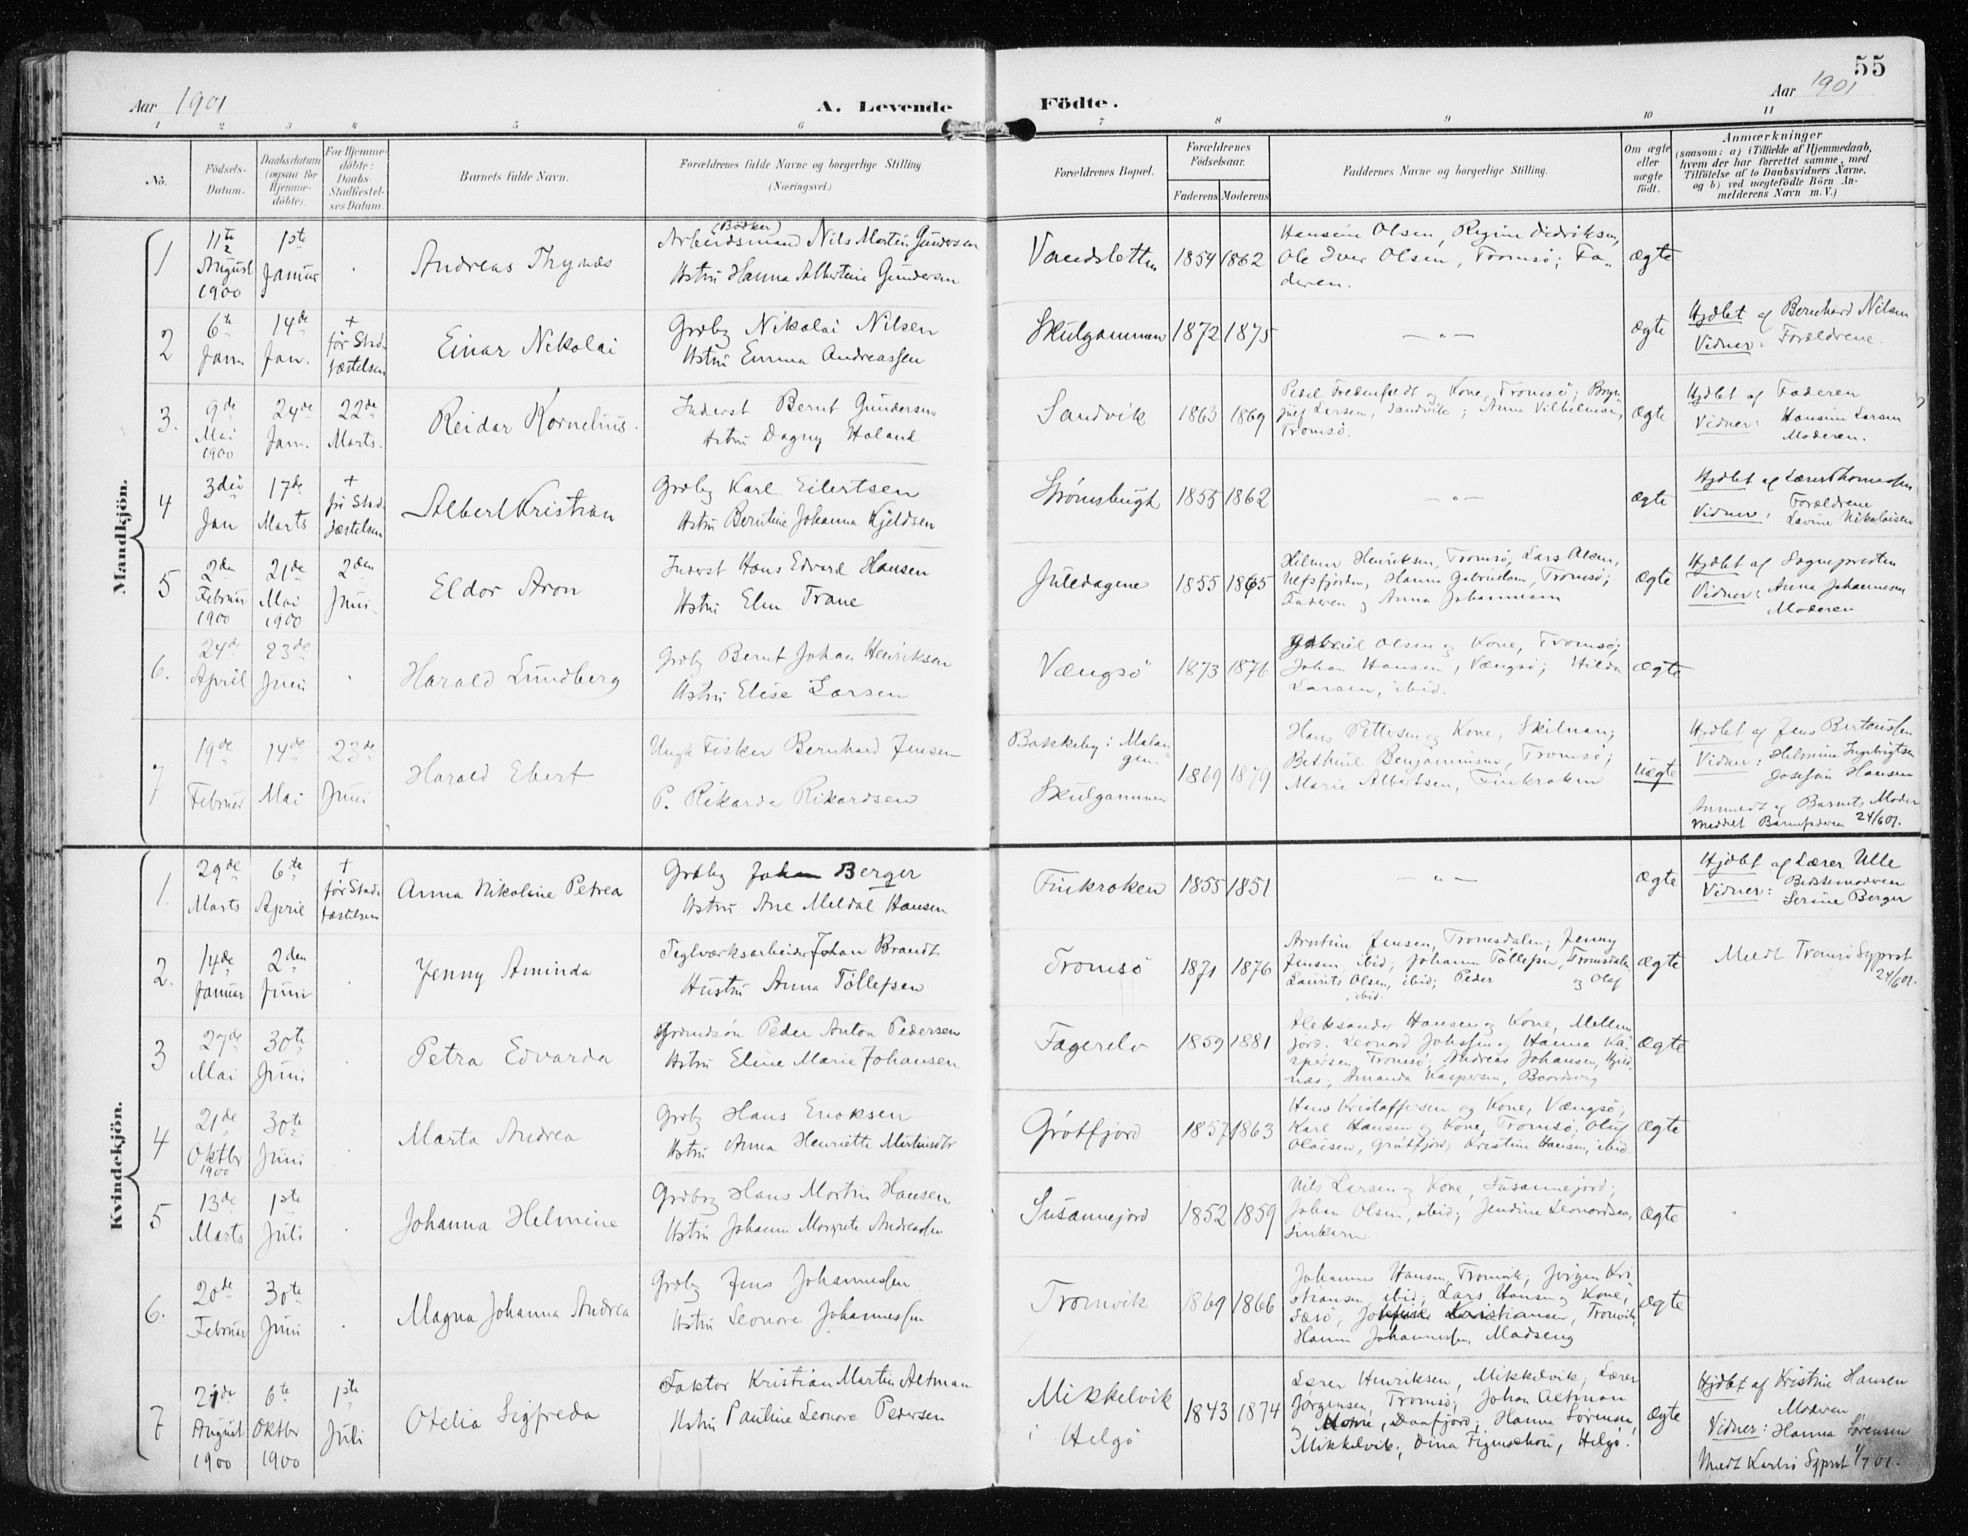 55
Aar 1901
A. Levende Födte.
Aar 1901
1 2 3 4 5 6 7 8 9 10 11
No.
Födsels-Datum.
Daabsdatum (ogsaa for Hjemmedöbte).
For Hjemmedöbte: Daabs-Stadfæstelses Datum.
Barnets fulde Navn.
Forældrenes fulde Navne og borgerlige Stilling. (Næringsvei.)
Forældrenes Bopæl.
Forældrenes Födselsaar.
Faderens Moderens
Faddernes Navne og borgerlige Stilling.
Om ægte eller uægte født.
Anmærkninger
(saasom: a) i Tilfælde af Hjemmedaab, hvem der har forrettet samme, med Tilföielse af to Daabsvidners Navne, og b) ved uægtefödte Börn Anmelderens Navn m. V.)
Mandkjön.
1 11te August 1900 1ste Januar . Andreas Thynæs
(Bödker)
Arbeidsmand Nils Martin Gundersen
Hstru Hanna Albertine Gundersen
Vandsletten 1854 1862
Hansine Olsen, Regine Didriksen,
Ole Iver Olsen, Tromsö; Faderen.
ægte
2 6te Jan. 14de Jan. + før Stadfæstelsen Einar Nikolai
Grdbg Nikolai Nilsen
Hstru Emma Andreassen
Skulgammen 1872 1875 — " — ægte
Hjdbt af Bernhard Nilsen
Vidner: Forældrene.
3. 9de Mai 1900 24de Jan. 22de Marts. Reidar Kornelius.
Inderst Bernt Gundersen
Hstru Dagny Haland
Sandvik 1863 1869
og Kone, Tromsø;
Larsen, Sandvik; Anna Vilhelmsen,
Tromsö.
ægte
Hjdbt af Faderen
Vidner: Hansine Larsen
Moderen.
4 3die Jan 17de Marts + før Stadfæstelsen Albert Kristian
Grdbg Karl Eilertsen
Hstru Berntine Johanna Kjeldsen
Strømsbugt 1855 1862 — " — ægte
Hjdbt af Lærer Thomassen
Vidner: Forældrene
Lavine Nikolaisen
5 2den Februar 1900 21de Mai 1900 2den Juni Eldor Aron
Inderst Hans Edvard Hansen
Hstru Elen Trane
Juledagene 1855 1865
Hilmer Henriksen, Tromsö; Lars Olsen,
Ulfsfjorden, Hanna Gabrielsen, Tromsö;
Faderen og Anna Johannesen
ægte
Hjdbt af Sognepresten
Vidner: Anna Johannesen
Moderen
6. 24de April 23de Juni . Harald Lundberg
Grdbg Bernt Johan Henriksen
Hstru Elise Larsen
Vængsö 1873 1876
Gabriel Olsen og Kone, Tromsö;
Johan Hansen, Vængsö; Hilda
Larsen, ibid.
ægte
7 19de Februar 14de Mai 23de Juni Harald Ebert
Ungk Fisker Bernhard Jensen
P. Rikarda Rikardsen
Bakkeby i Malangen.
Skulgammen
1869 1879
Hans Pettersen og Kone, Skilnan;
Bethuel Benjaminsen, Tromsö;
Marie Albertsen, Finkroken
uægte
Hjdbt af Jens Berteussen
Vidner: Helmine Ingebrigtsen
Josefin Hansen
Anmeldt af Barnets Moder
Meddelt Barnefaderen 24/6 01.
Kvindekjön.
1. 29de Marts 6te April + før Stadfæstelsen Anna Nikoline Petrea
Grdbg Johan Berger
Hstru Ane Meldal Hansen
Finkroken 1855 1851 — " — ægte
Hjdbt af Lærer Ulle
Vidner: Bedstemoderen
Serine Berger
2. 14de Januar 2den Juni . Jenny Aminda
Teglværksarbeider Johan Brandt
Hustru Anna Töllefsen
Tromsö 1871 1876
Arntine Jensen, Tromsdalen; Jenny
Jensen, ibid; Johanna Töllefsen, Tromsdalen
Laurits Olsen, ibid; Peder og Olaf
ibid.
ægte
Meldt Tromsö Sgprst
24/6 01.
3 27de Mai 30te Juni . Petra Edvarda
Grdmdsøn Peder Anton Pedersen
Hstru Eline Marie Johansen
Fagerelv 1859 1881
Aleksander Hansen og Kone, Mellem
jord. Leonard og Hanna Kaspersen,
Tromsö; Andreas Johansen,
Amanda Kaspersen,
ægte
4 21de Oktbr 1900 30te Juni . Marta Andrea
Grdbg Hans Enoksen
Hstru Anna Henriette Martinsdtr
Grötfjord 1857 1863
Hans Kristoffersen og Kone, Vængsö,
Karl Hansen og Kone, Tromsö. Oluf
Olaisen, Grötfjord; Kristine Hansen, ibid.
ægte
5 13de Marts 1ste Juli . Johanna Helmine
Grdbrg Hans Martin Hansen
Hstru Johanna Margrete Andreassen
Susannejord 1852 1859
Nils Larsen og Kone, Susannejord;
Johan Olsen, ibid; Jendine Leonardsen,

ægte
6. 20de Februar 30te Juni . Magna Johanna Andrea
Grdbg Jens Johannessen
Hstru Leonore Johannessen
Tromvik 1869 1866
Johannes Hansen, Tromvik; Jørgen Kristiansen,
ibid; Lars Hansen og Kone,
Sæsö; Kristiansen, Tromvik,
Hanna Johannessen, Madseng
ægte
7 21de August 1900 6te Oktbr 1900 1ste Juli Otelia Sigfreda
Faktor Kristian Martin Aetman
Hstru Pauline Leonore Pedersen
Mikkelvik
i Helgö
1843 1874
Lærer Henriksen, Mikkelvik; Lærer
Jørgensen, Tromsö; Johan Aetman
og Kone, Daafjord; Hanna Sörensen,
Mikkelvik; Dina Figenschou, Helgö.
ægte
Hjdbt af Kristine Hansen
Vidner: Moderen
Hanna Sørensen
Meldt Karlsö Sgprst 1/7 01.